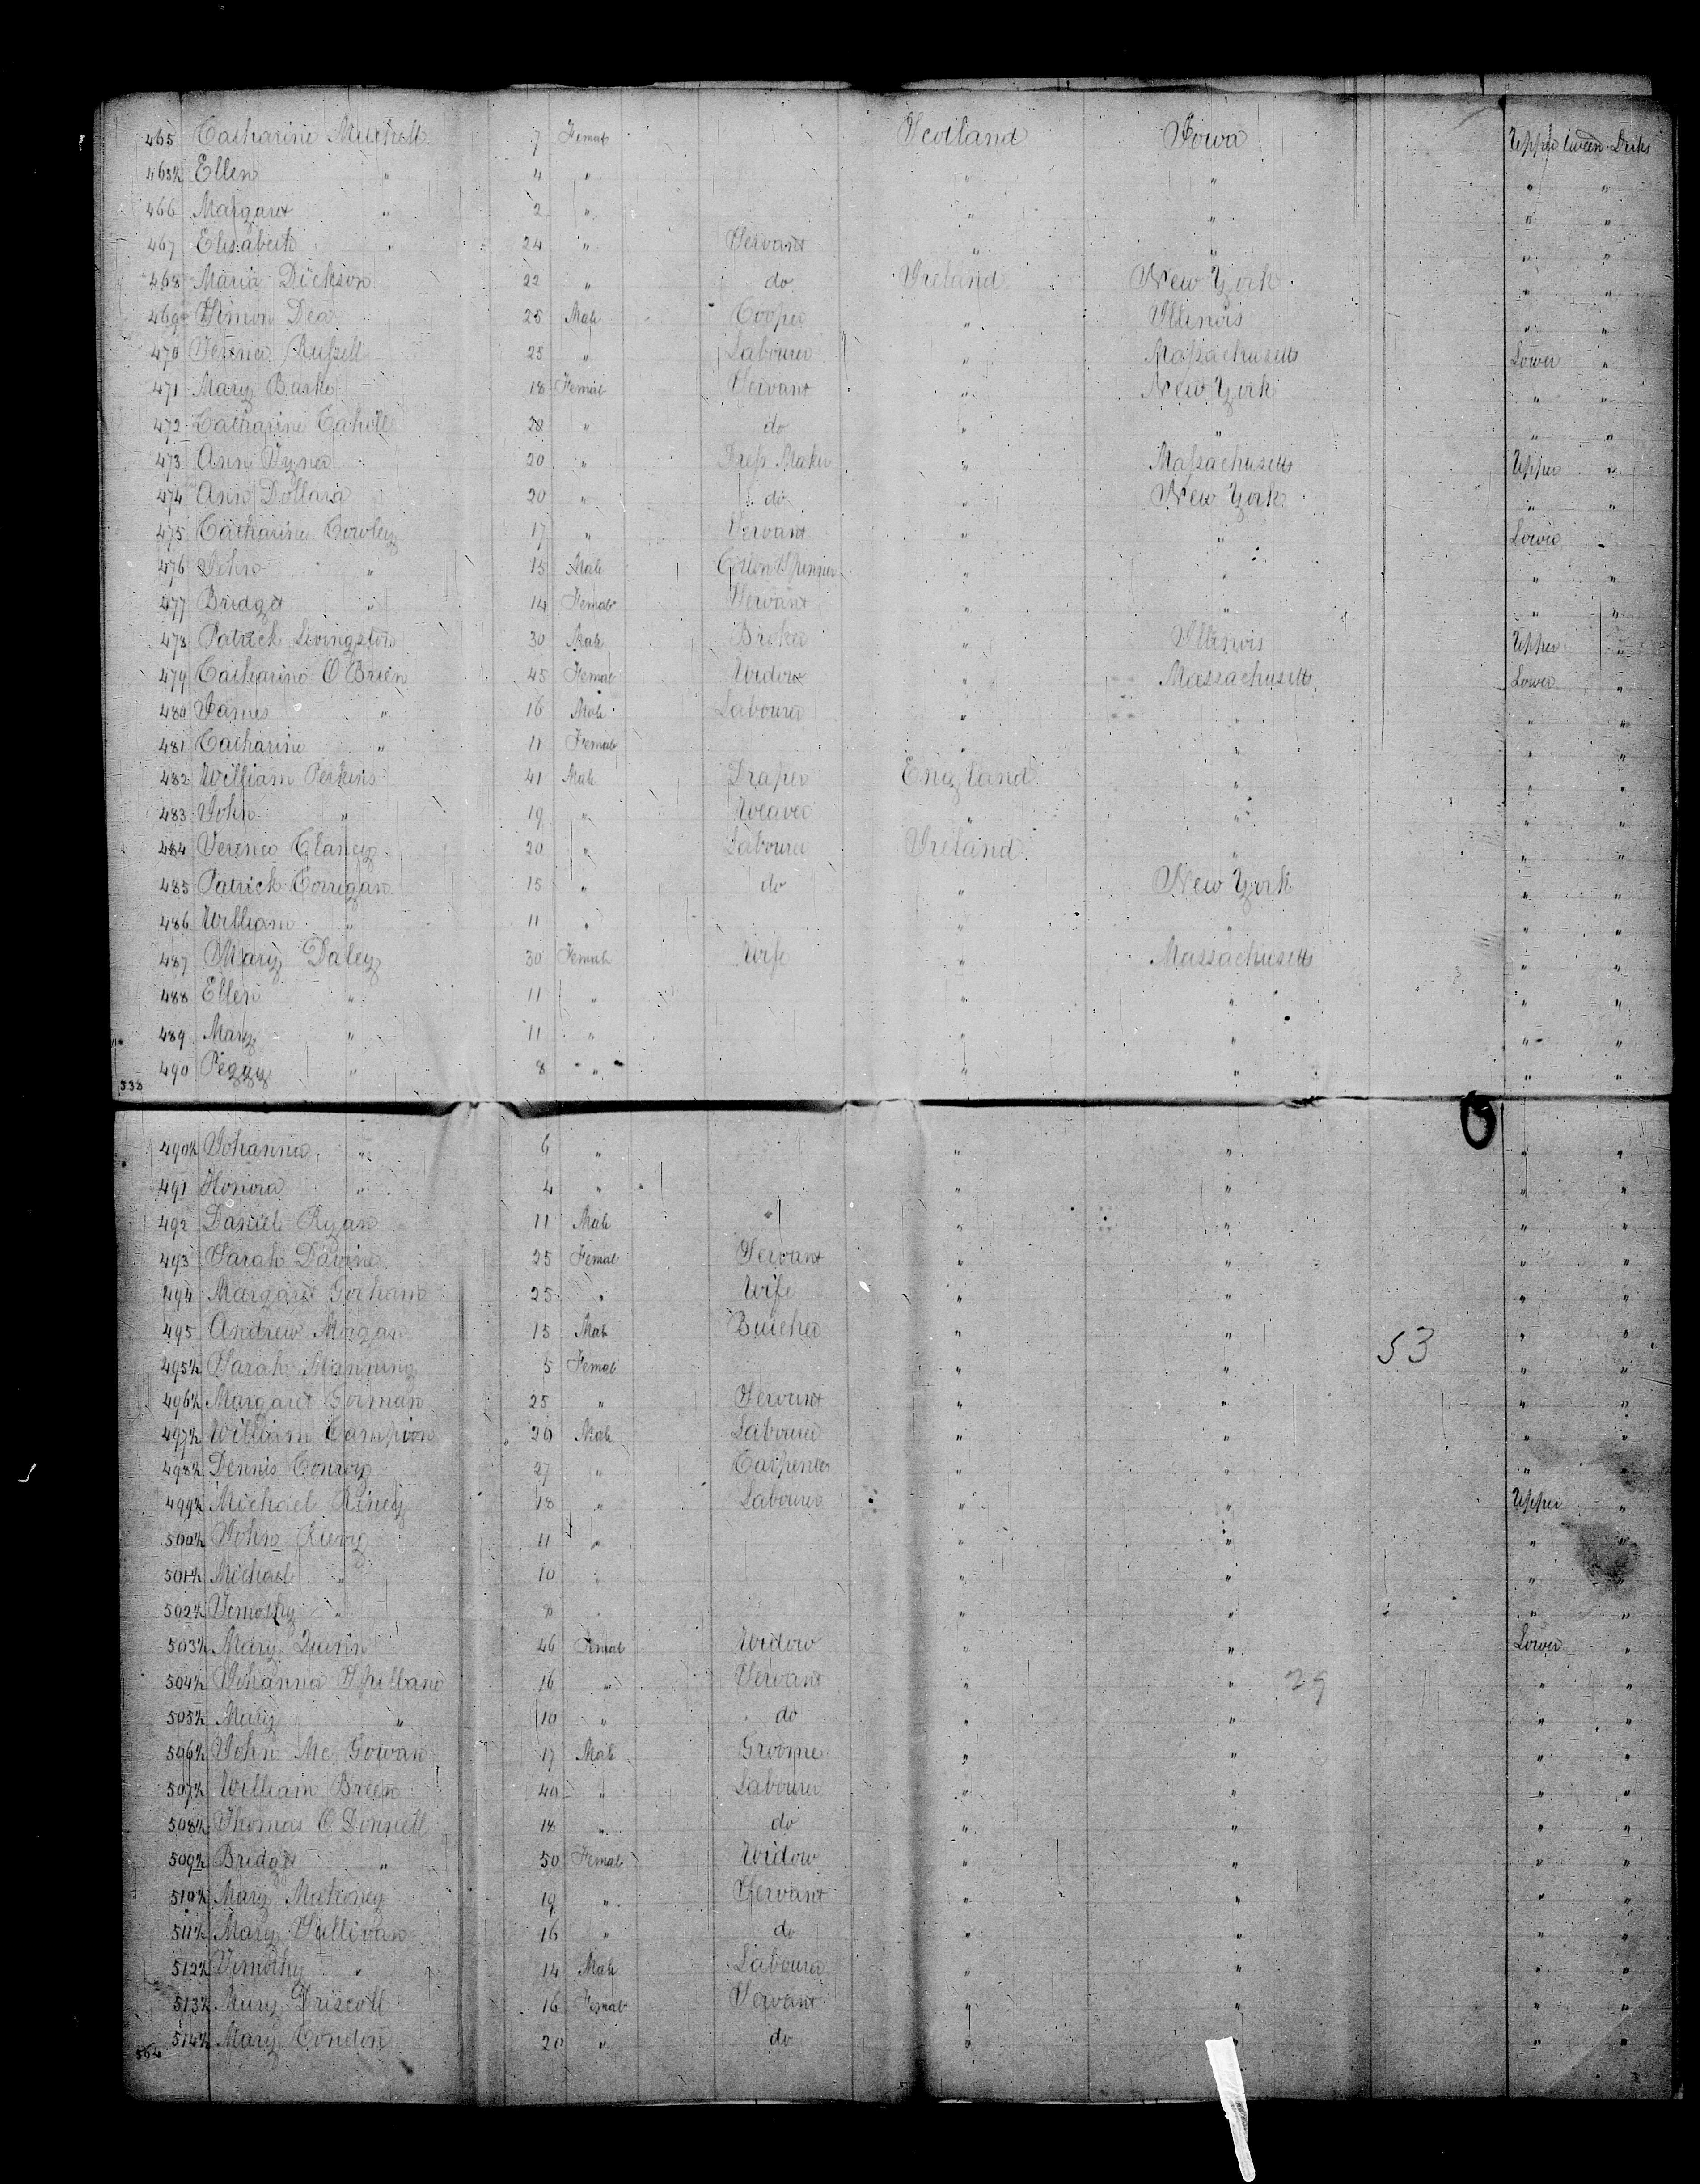 465 Catharine Mitchell 7 Female Scotland Iowa Upper tween Decks
465½ Ellen " 4 " " " " "
466 Margaret " 2 " " " " "
467 Elisabeth " 24 " Servant " " " "
468 Maria Dickson 22 " do Ireland New York " "
469 Simon Dea 28 Male Cooper " Illinois " "
470 Terence Russell 25 " Labourer " Massachusetts Lower "
471 Mary Burke 18 Female Servant " New York " "
472 Catharine Cahill 28 " do " " " "
473 Ann 20 " Dress Maker " Massachusetts Upper "
474 Ann Dollard 20 " do " New York " "
475 Catharine Cowley 17 " Servant " " Lower "
476 John " 15 Male Cotton Spinner " " " "
477 Bridget " 14 Female Servant " " " "
478 Patrick Livingston 30 Male Broker " Illinois Upper "
479 Catharine O'Brien 45 Female Widow " Massachusetts Lower "
480 James " 16 Male Labourer " " " "
481 Catharine " 11 Female " " " "
482 William Perkins 41 Male Draper England " " "
483 John " 19 " Weaver " " " "
484 Terence Clancy 20 " Labourer Ireland " " "
485 Patrick Corrigan 15 " do " New York " "
486 William " 11 " " " " "
487 Mary Daley 30 Female Wife " Massachusetts " "
488 Ellen " 11 " " " " "
489 Mary " 11 " " " " "
490 Peggy " 8 " " " " "
338
490½ Johanna " 6 " " " " "
491 Honora " 4 " " " " "
492 Daniel Ryan 11 Male " " " " "
493 Sarah Davine 25 Female Servant " " " "
494 Margaret Gorham 25 " Wife " " " "
495 Andrew Magan 15 Male Butcher " " 53 " "
495½ Sarah Manning 5 Female " " " "
496½ Margaret Gorman 25 " Servant " " " "
497½ William Campion 20 Male Labourer " " " "
498½ Dennis Conroy 27 " Carpenter " " " "
499½ Michael 18 " Labourer " " Upper "
500½ John 11 " " " " "
501½ Michael " 10 " " " " "
502½ Timothy " 8 " " " " "
503½ Mary Quinn 46 Female Widow " " Lower "
504½ Johanna Spillane 16 " Servant " " 29 " "
505½ Mary " 10 " do " " " "
506½ John Mc Gowan 17 Male Groome " " " "
507½ William Breen 40 " Labourer " " " "
508½ Thomas O Donnell 18 " do " " " "
509½ Bridget " 50 Female Widow " " " "
510½ Mary Mahoney 19 " Servant " " " "
511½ Mary Sullivan 16 " do " " " "
512½ Timothy " 14 Male Labourer " " " "
513½ Mary Driscoll 16 Female Servant " " " "
514½ Mary Condon 20 " do " " " "
564